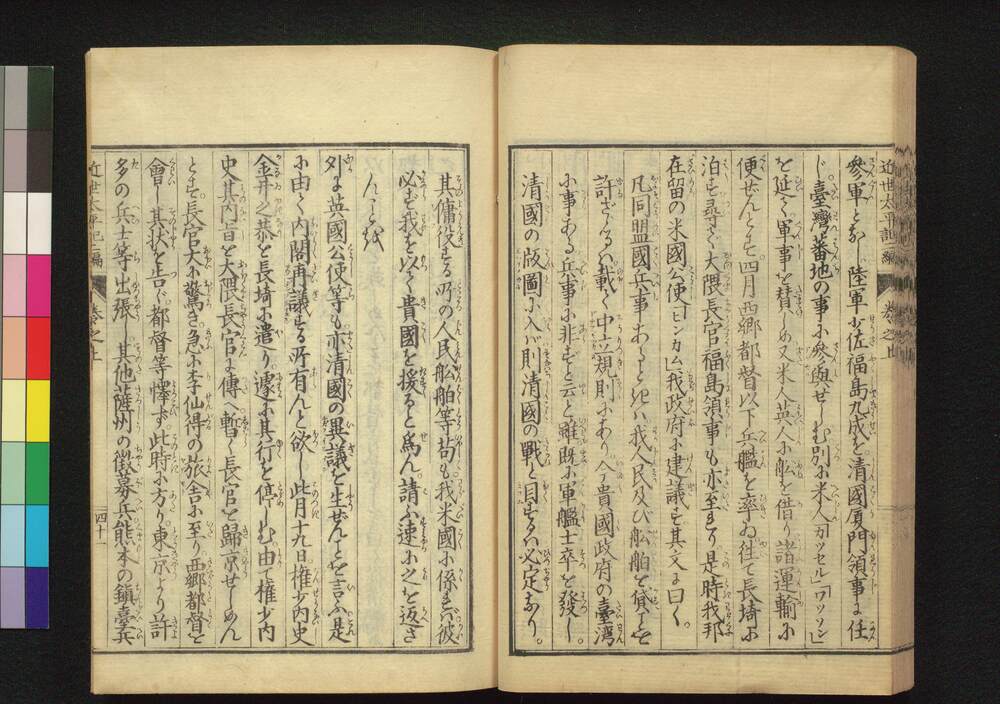 近世太平記二編　巻之上
參軍となし陸軍少佐福島九成を清國厦門領事に任
じ。臺灣蕃地の事に參與せしむ別に米人「カツセル」「ワツソン」
を延て軍事を賛しめ又米人英人に舩を借り諸運輸に
便せんとす四月西郷都督以下兵艦を率ゐ往て長埼に
泊す尋て大隈長官福島領事も亦至れり是時我邦
在留の米國公使「ビンカム」我政府に建議す其文に曰く。
凡同盟國兵事あるときハ我人民及び舩舶を貸すを
許さゞるハ載て中立規則にあり今貴國政府の臺湾
に事ある兵事に非ずと云と雖既に軍艦士卒を發し。
清國の版圖に入バ則清國の戰と目するハ必定なり。
其傭役する所の人民舩舶等苟も我米國に係れバ彼
必ず我を以て貴國を援ると為ん。請ふ速に之を返さ
んことを
外に英國公使等も亦清國の異議を生ぜんことを言ふ是
に由て内閣再議する所有んと欲し此月十九日權少内史
金井之恭を長埼に遣り。遽に其行を停しむ由て權少内
史其内旨を大隈長官に傳へ暫く長官を歸京せしめん
とす。長官大に驚き急に李仙得の旅舎に至り。西郷都督を
會し其状を告ぐ都督等懌ず。此時に方り。東京より許
多の兵士等出張し其他薩州の徴募兵熊本の鎮臺兵
近世太平記二編　巻之上　四十一